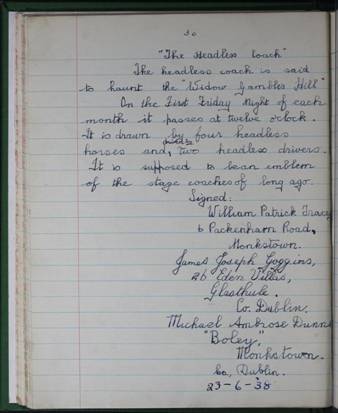 30
"The Headless Coach"
The headless coach is said
to haunt the "Widow Gambles Hill"
On the First Friday Night of each
month it passes at twelve o'clock.
It is drawn by four headless
horses and, two headless drivers.
It is supposed to be an emblem
of the stage coaches of long ago.
Signed:
William Patrick Tracey
6 Packenham Road,
Monkstown.
James Joseph Goggins,
26 Eden Villas,
Glasthule.
Co. Dublin.
Michael Ambrose Dunne
"Boley,"
Monkstown.
Co. Dublin.
23-6-38